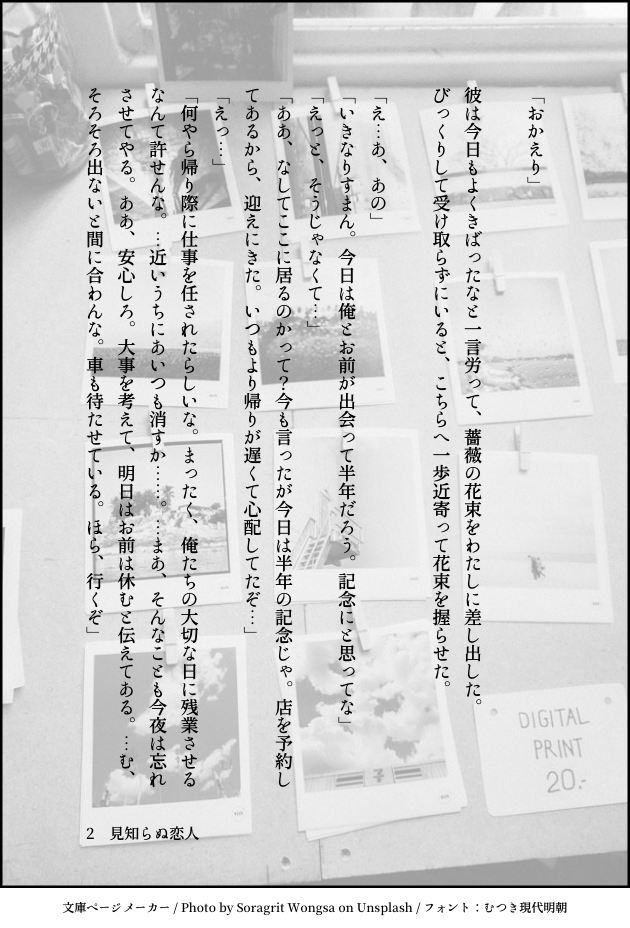 「おかえり」
彼は今日もよくきばったなと一言労って、薔薇の花束をわたしに差し出した。
びっくりして受け取らずにいると、こちらへ一歩近寄って花束を握らせた。
「え…あ、あの」
「いきなりすまん。今日は俺とお前が出会って半年だろう。記念にと思ってな」
「えっと、そうじゃなくて…」
「ああ、なしてここに居るのかって？今も言ったが今日は半年の記念じゃ。店を予約し
てあるから、迎えにきた。いつもより帰りが遅くて心配してたぞ…」
「えっ…」
「何やら帰り際に仕事を任されたらしいな。まったく、俺たちの大切な日に残業させる
なんて許せんな。…近いうちにあいつも消すか……。…まあ、そんなことも今夜は忘れ
させてやる。ああ、安心しろ。大事を考えて、明日はお前は休むと伝えてある。…む、
そろそろ出ないと間に合わんな。車も待たせている。ほら、行くぞ」
2　見知らぬ恋人
DIGITAL
PRINT
20.-
文庫ページメーカー / Photo by Soragrit Wongsa on Unsplash / フォント：むつき現代明朝